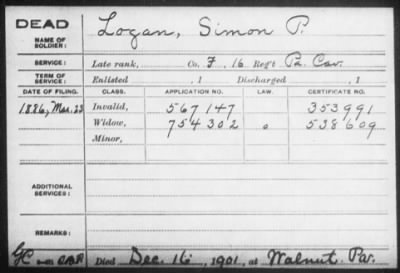 DEAD
NAME OF SOLDIER: Logan, Simon P.
SERVICE: Late rank, Co. F, 16 Reg't Pa. Cav.
TERM OF SERVICE: Enlisted , 1 Discharged , 1
DATE OF FILING. CLASS. APPLICATION NO. LAW. CERTIFICATE NO.
1886, Mar. 23 Invalid, 567147 353991
Widow, 754302 538609
Minor,
ADDITIONAL SERVICES:
REMARKS:
Died Dec. 16, 1901, at Walnut Pa.